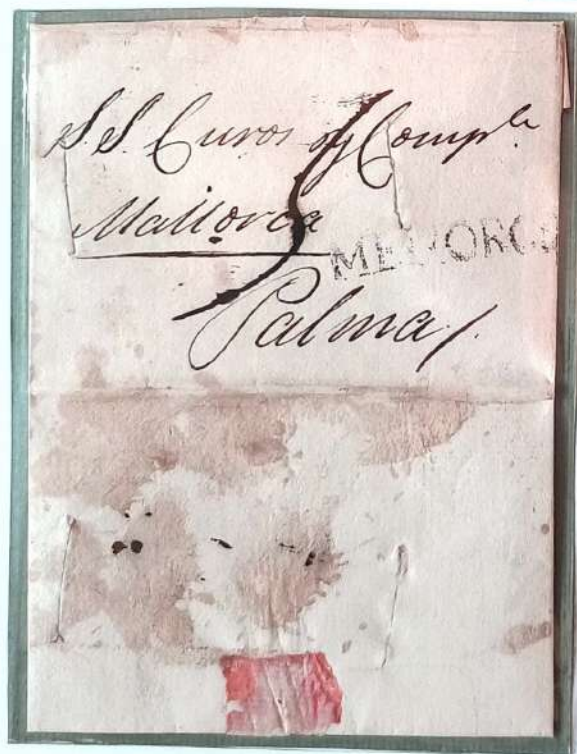 S S Curos y Comp.ª
Mallorca
MENORCA
Palma